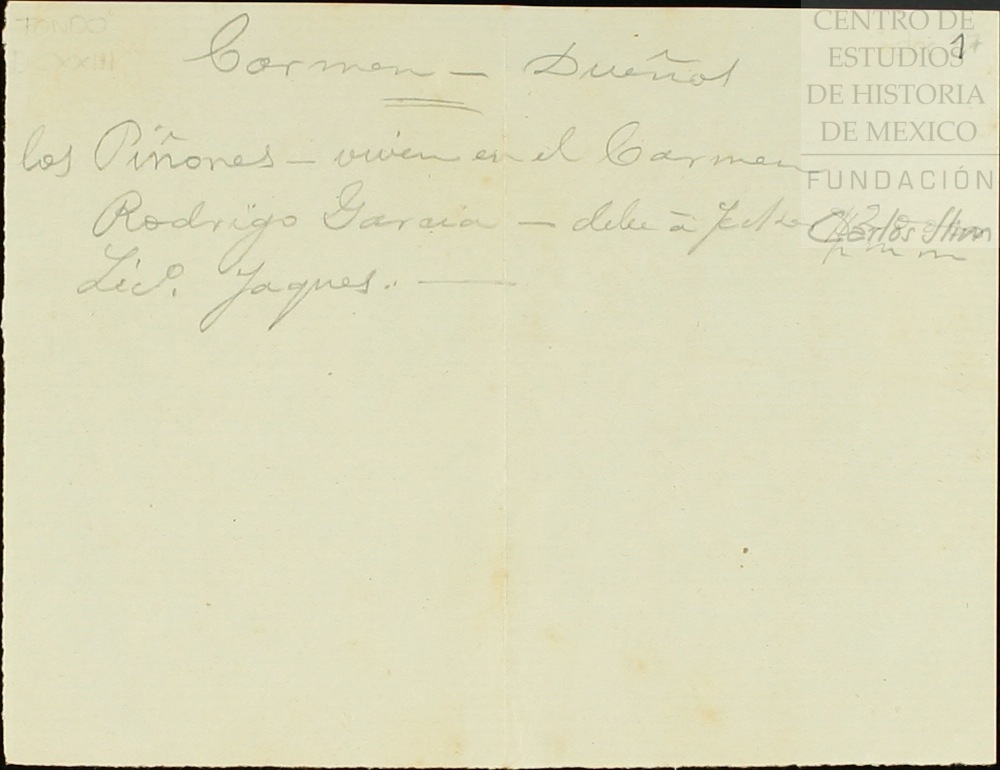 1
Carmen — Dueños
los Piñones — viven en el Carmen
Rodrigo Garcia — debe á
Lic. Jaques. —
CENTRO DE
ESTUDIOS
DE HISTORIA
DE MEXICO
FUNDACIÓN
Carlos Slim